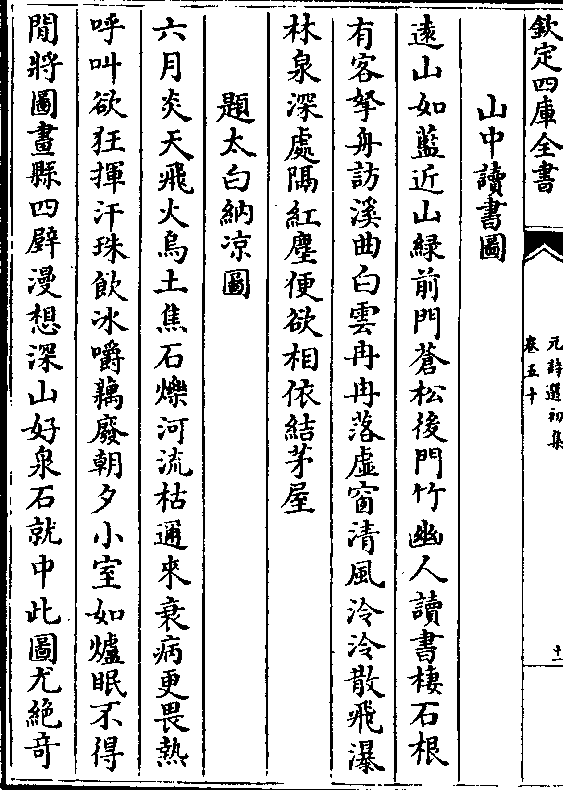 欽定四庫全書
元詩選初集
卷五十
十一
山中讀書圖
遠山如藍近山緑前門蒼松後門竹幽人讀書棲石根
有客拏舟訪溪曲白雲冉冉落虛窗清風泠泠散飛瀑
林泉深處隔紅塵便欲相依結茅屋
題太白納凉圖
六月炎天飛火烏土焦石爍河流枯邇來衰病更畏熱
呼叫欲狂揮汗珠飲冰嚼藕廢朝夕小室如爐眠不得
閒將圖畫縣四壁漫想深山好泉石就中此圖尤絶竒